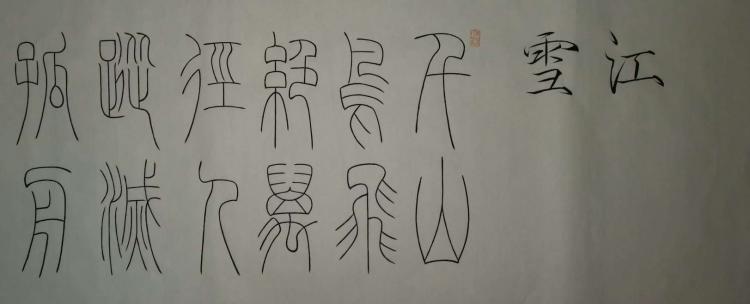 江雪
千山
鳥飛
絕萬
徑人
蹤滅
孤舟